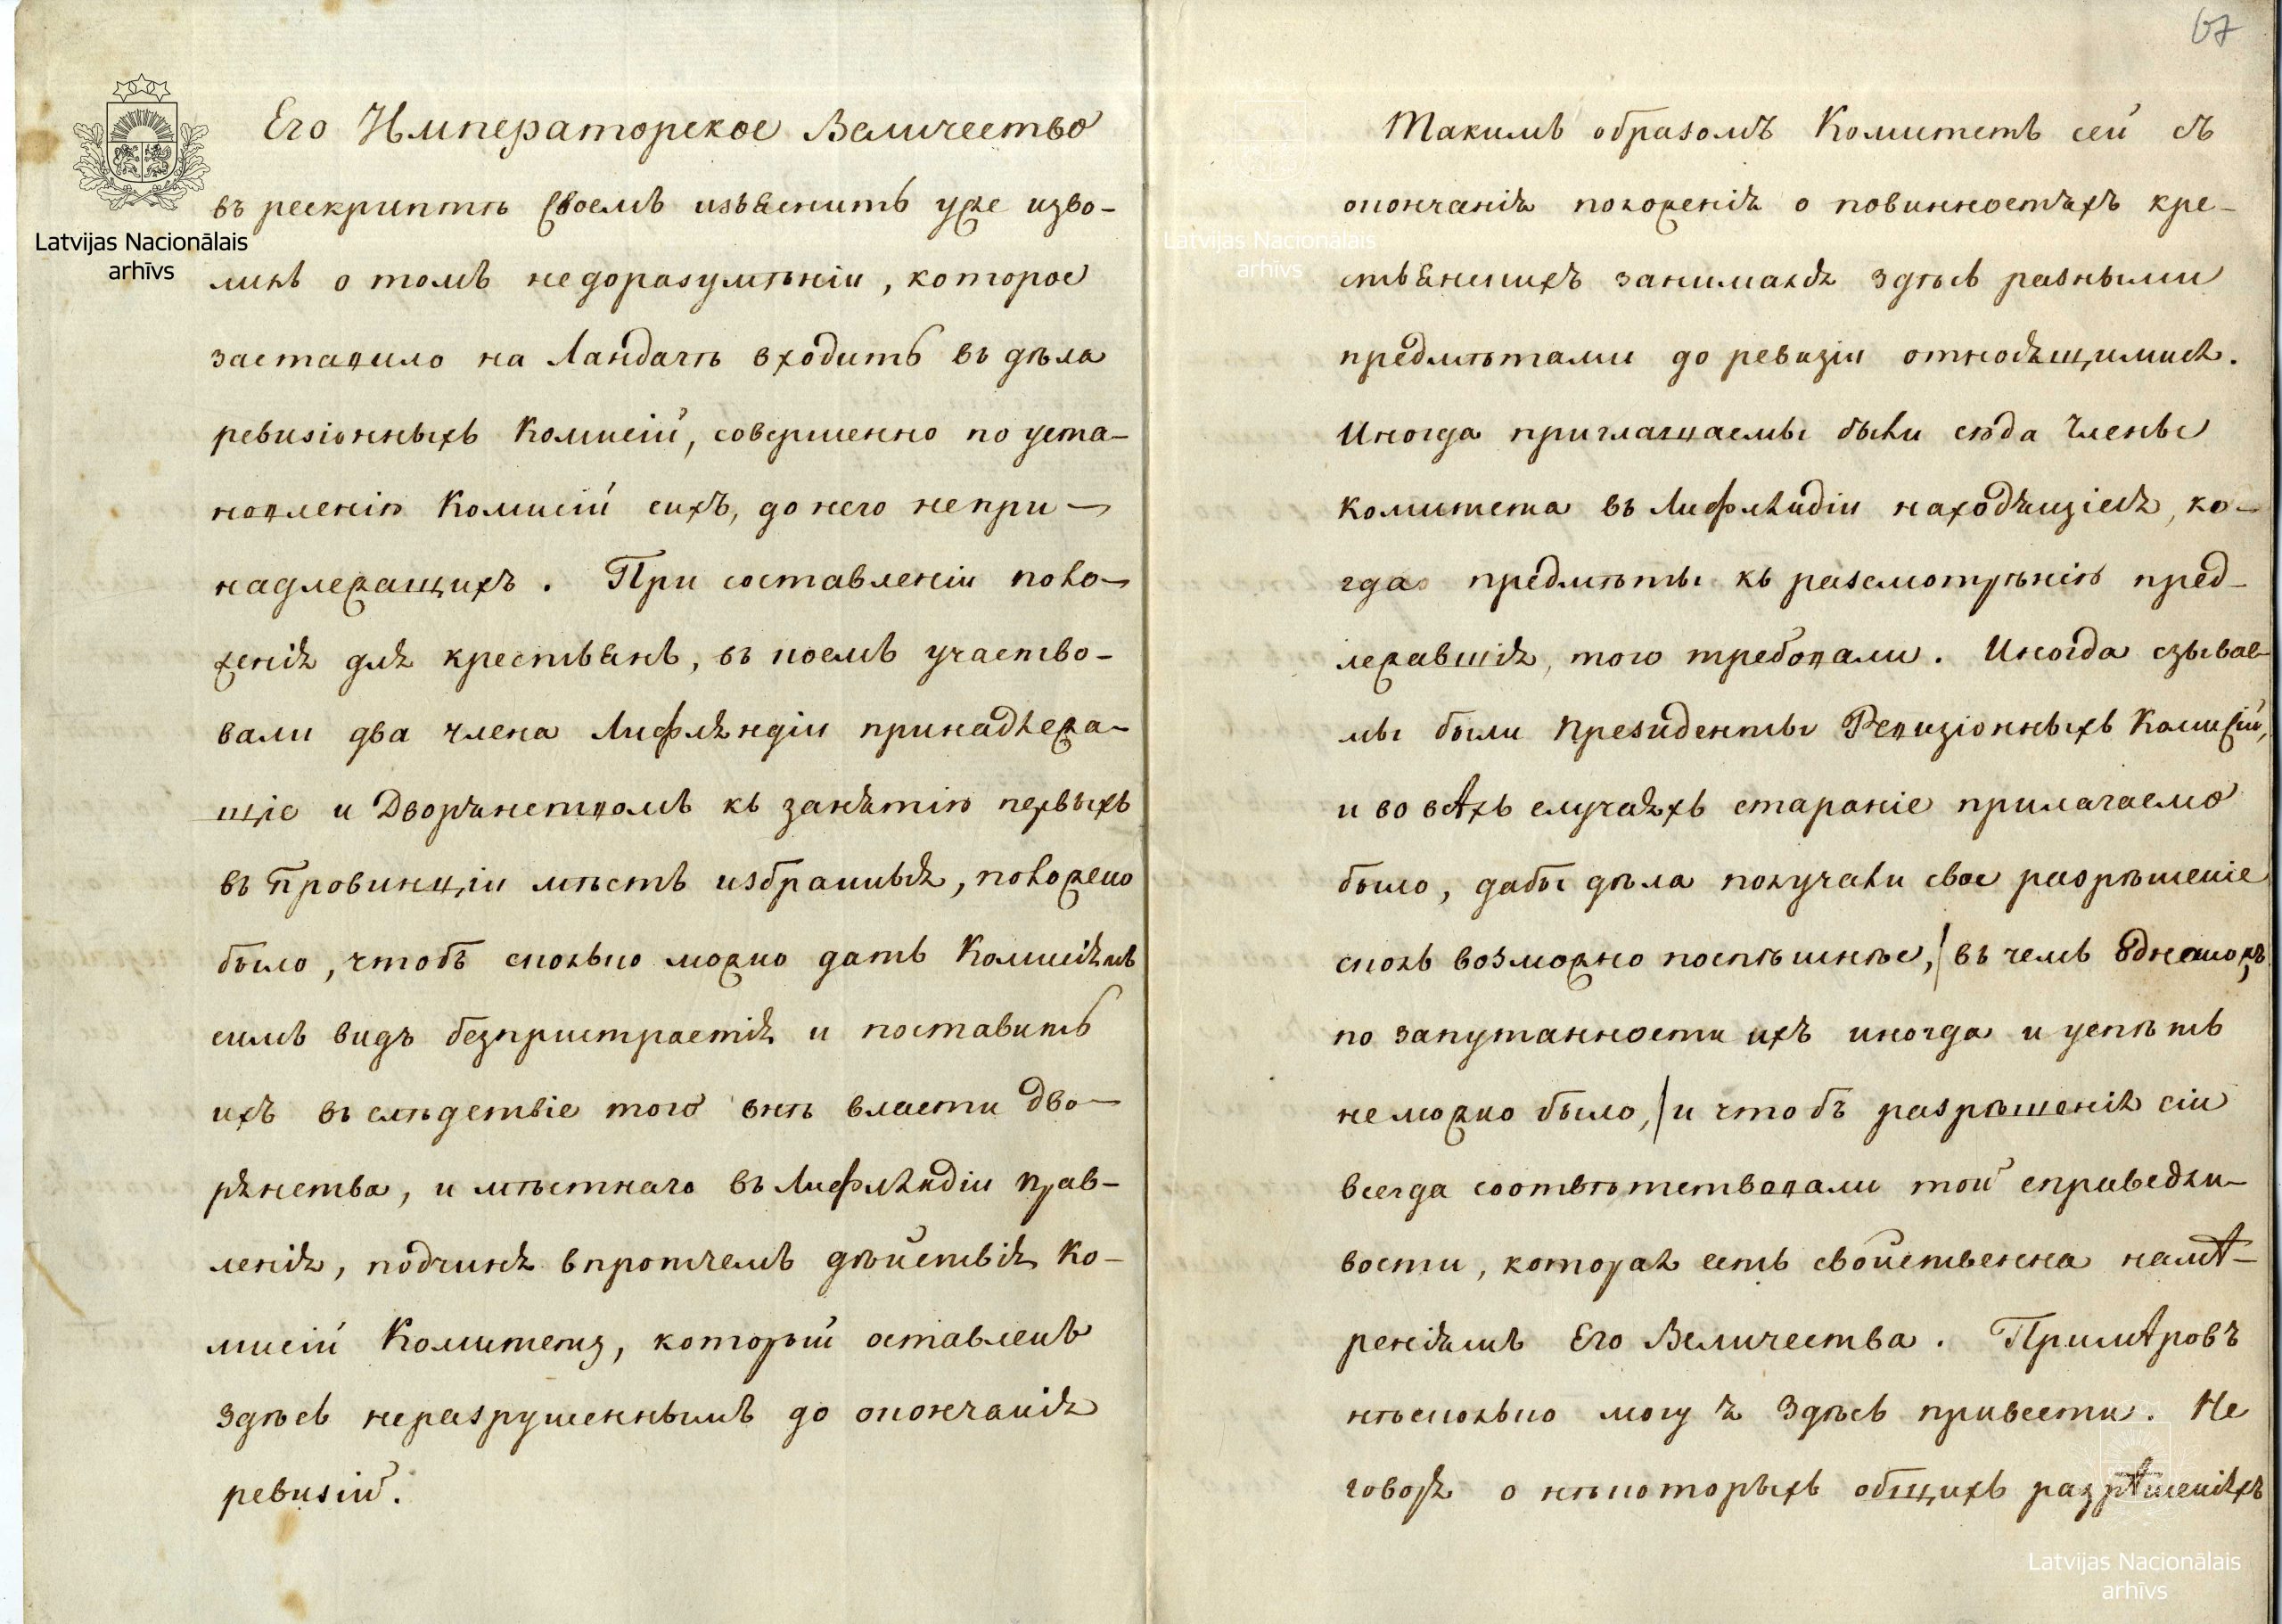 67
Его Императорское Величество
въ рескриптѣ своемъ изъяснить уже изво-
лилъ о томъ недоразумѣніи, которое
заставило на Ландагѣ входить въ дѣла
ревизіонныхъ Комисій, совершенно по уста-
новленію Комисій сихъ, до него непри-
надлежащихъ. При составленіи поло-
женія для крестьянъ, въ коемъ участво-
вали два члена Лифляндіи принадлежа-
щіе и Дворянствомъ къ занятію первыхъ
въ Провинціи мѣстъ избранныя, положено
было, чтобъ сколько можно дать Комисіямъ
симъ видъ безпристрастія и поставить
ихъ въ слѣдствіе того внѣ власти дво-
рянства, и мѣстнаго въ Лифляндіи прав-
ленія, подчиня впротчемъ дѣйствія Ко-
мисій Комитету, который оставленъ
здѣсь неразрушеннымъ до окончанія
ревизій.
Такимъ образомъ Комитетъ сей съ
окончанія положенія о повинностяхъ кре-
стьянскихъ занимался здѣсь разными
предмѣтами до ревизіи относящимися.
Иногда приглашаемы были сюда Члены
комитета въ Лифляндіи находящіеся, ко-
гда предмѣты къ разсмотрѣнію пред-
лежавшія, того требовали. Иногда сзывае-
мы были Президенты Ревизіонныхъ Комисій,
и во всѣхъ случаяхъ стараніе прилагаемо
было, дабы дѣла получали свое разрѣшеніе
сколь возможно поспѣшнѣе, / въ чемъ однакожъ
по запутанности ихъ иногда и успѣть
неможно было, / и чтобъ разрѣшенія сіи
всегда соотвѣтствовали той справедли-
вости, которая есть свойственна намѣ-
реніямъ Его Величества. Примѣровъ
нѣсколько могу я здѣсь привести. Не
говоря о нѣкоторыхъ общихъ разрѣшеніяхъ
Latvijas Nacionālais
arhīvs
Latvijas Nacionālais
arhīvs
Latvijas Nacionālais
arhīvs